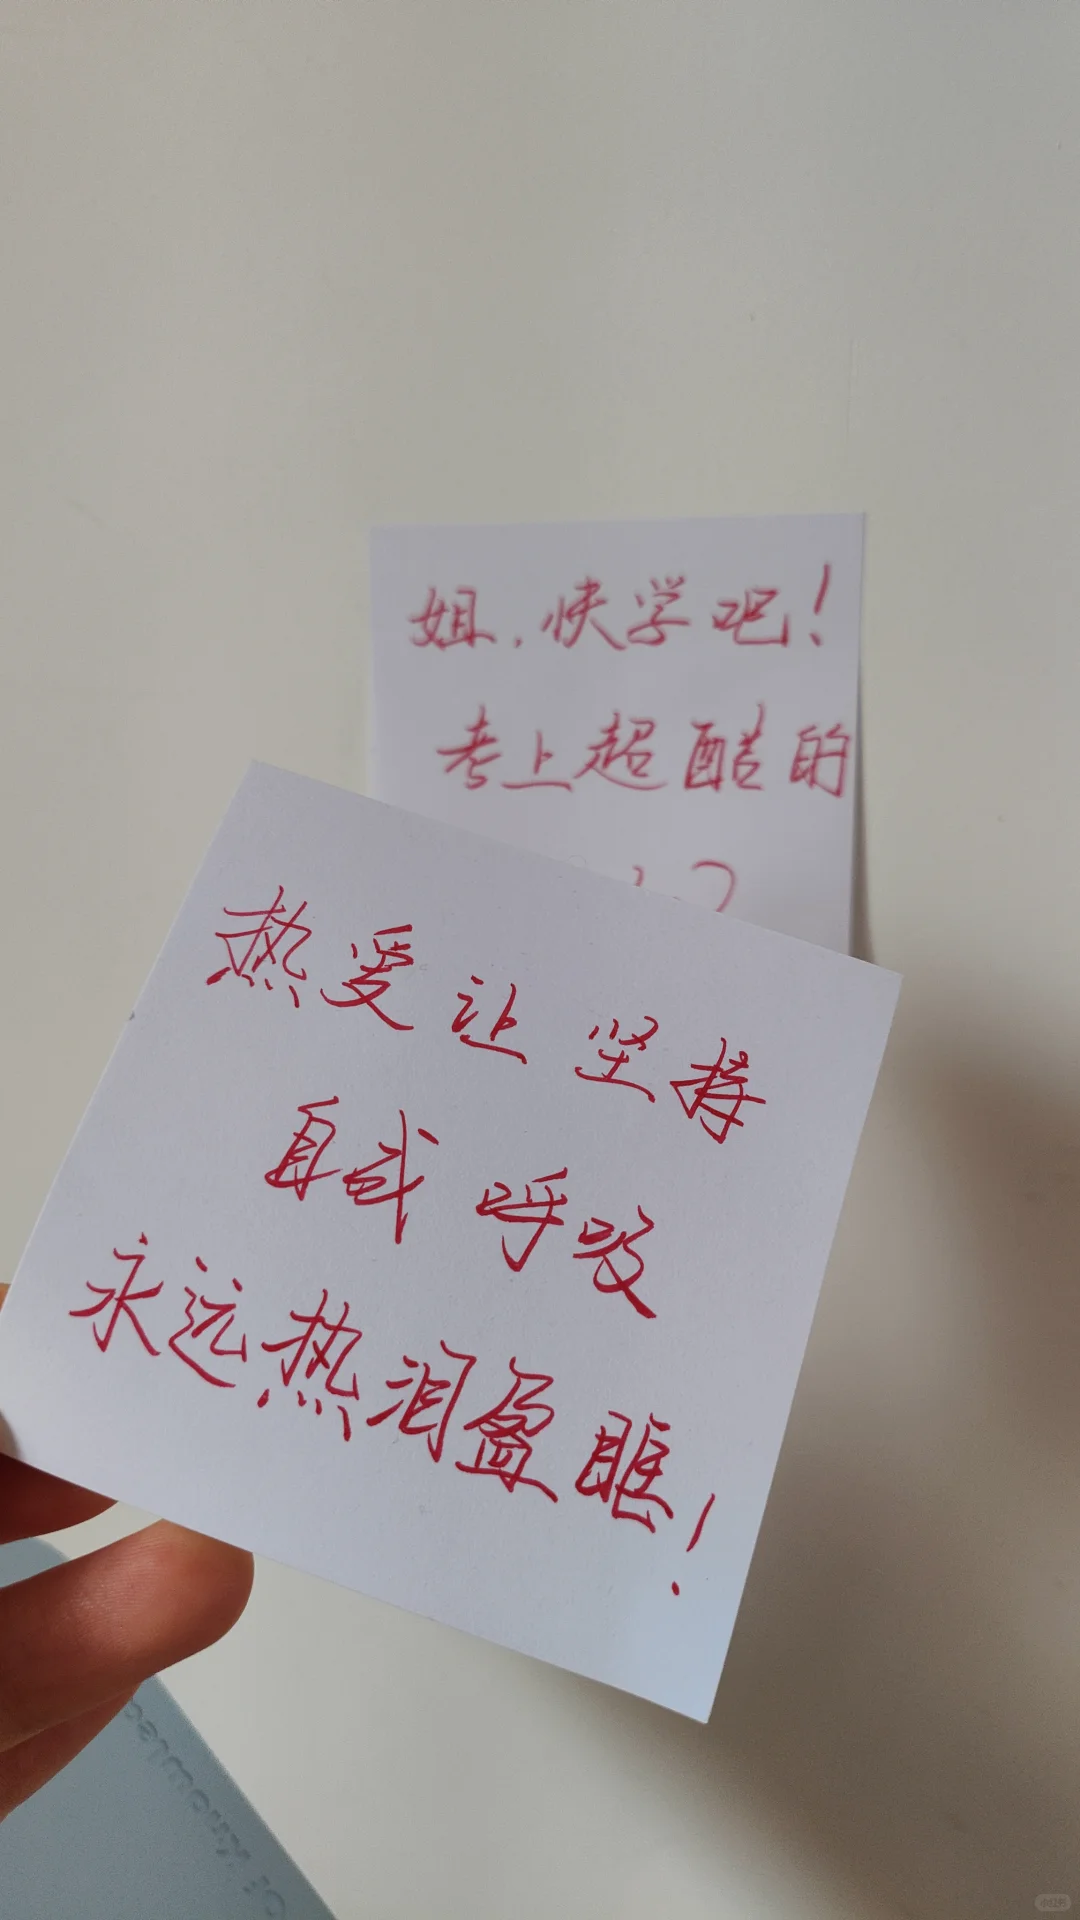 姐，快学吧！
考上超酷的
热爱让坚持
自成呼吸
永远热泪盈眶！
of Knowled